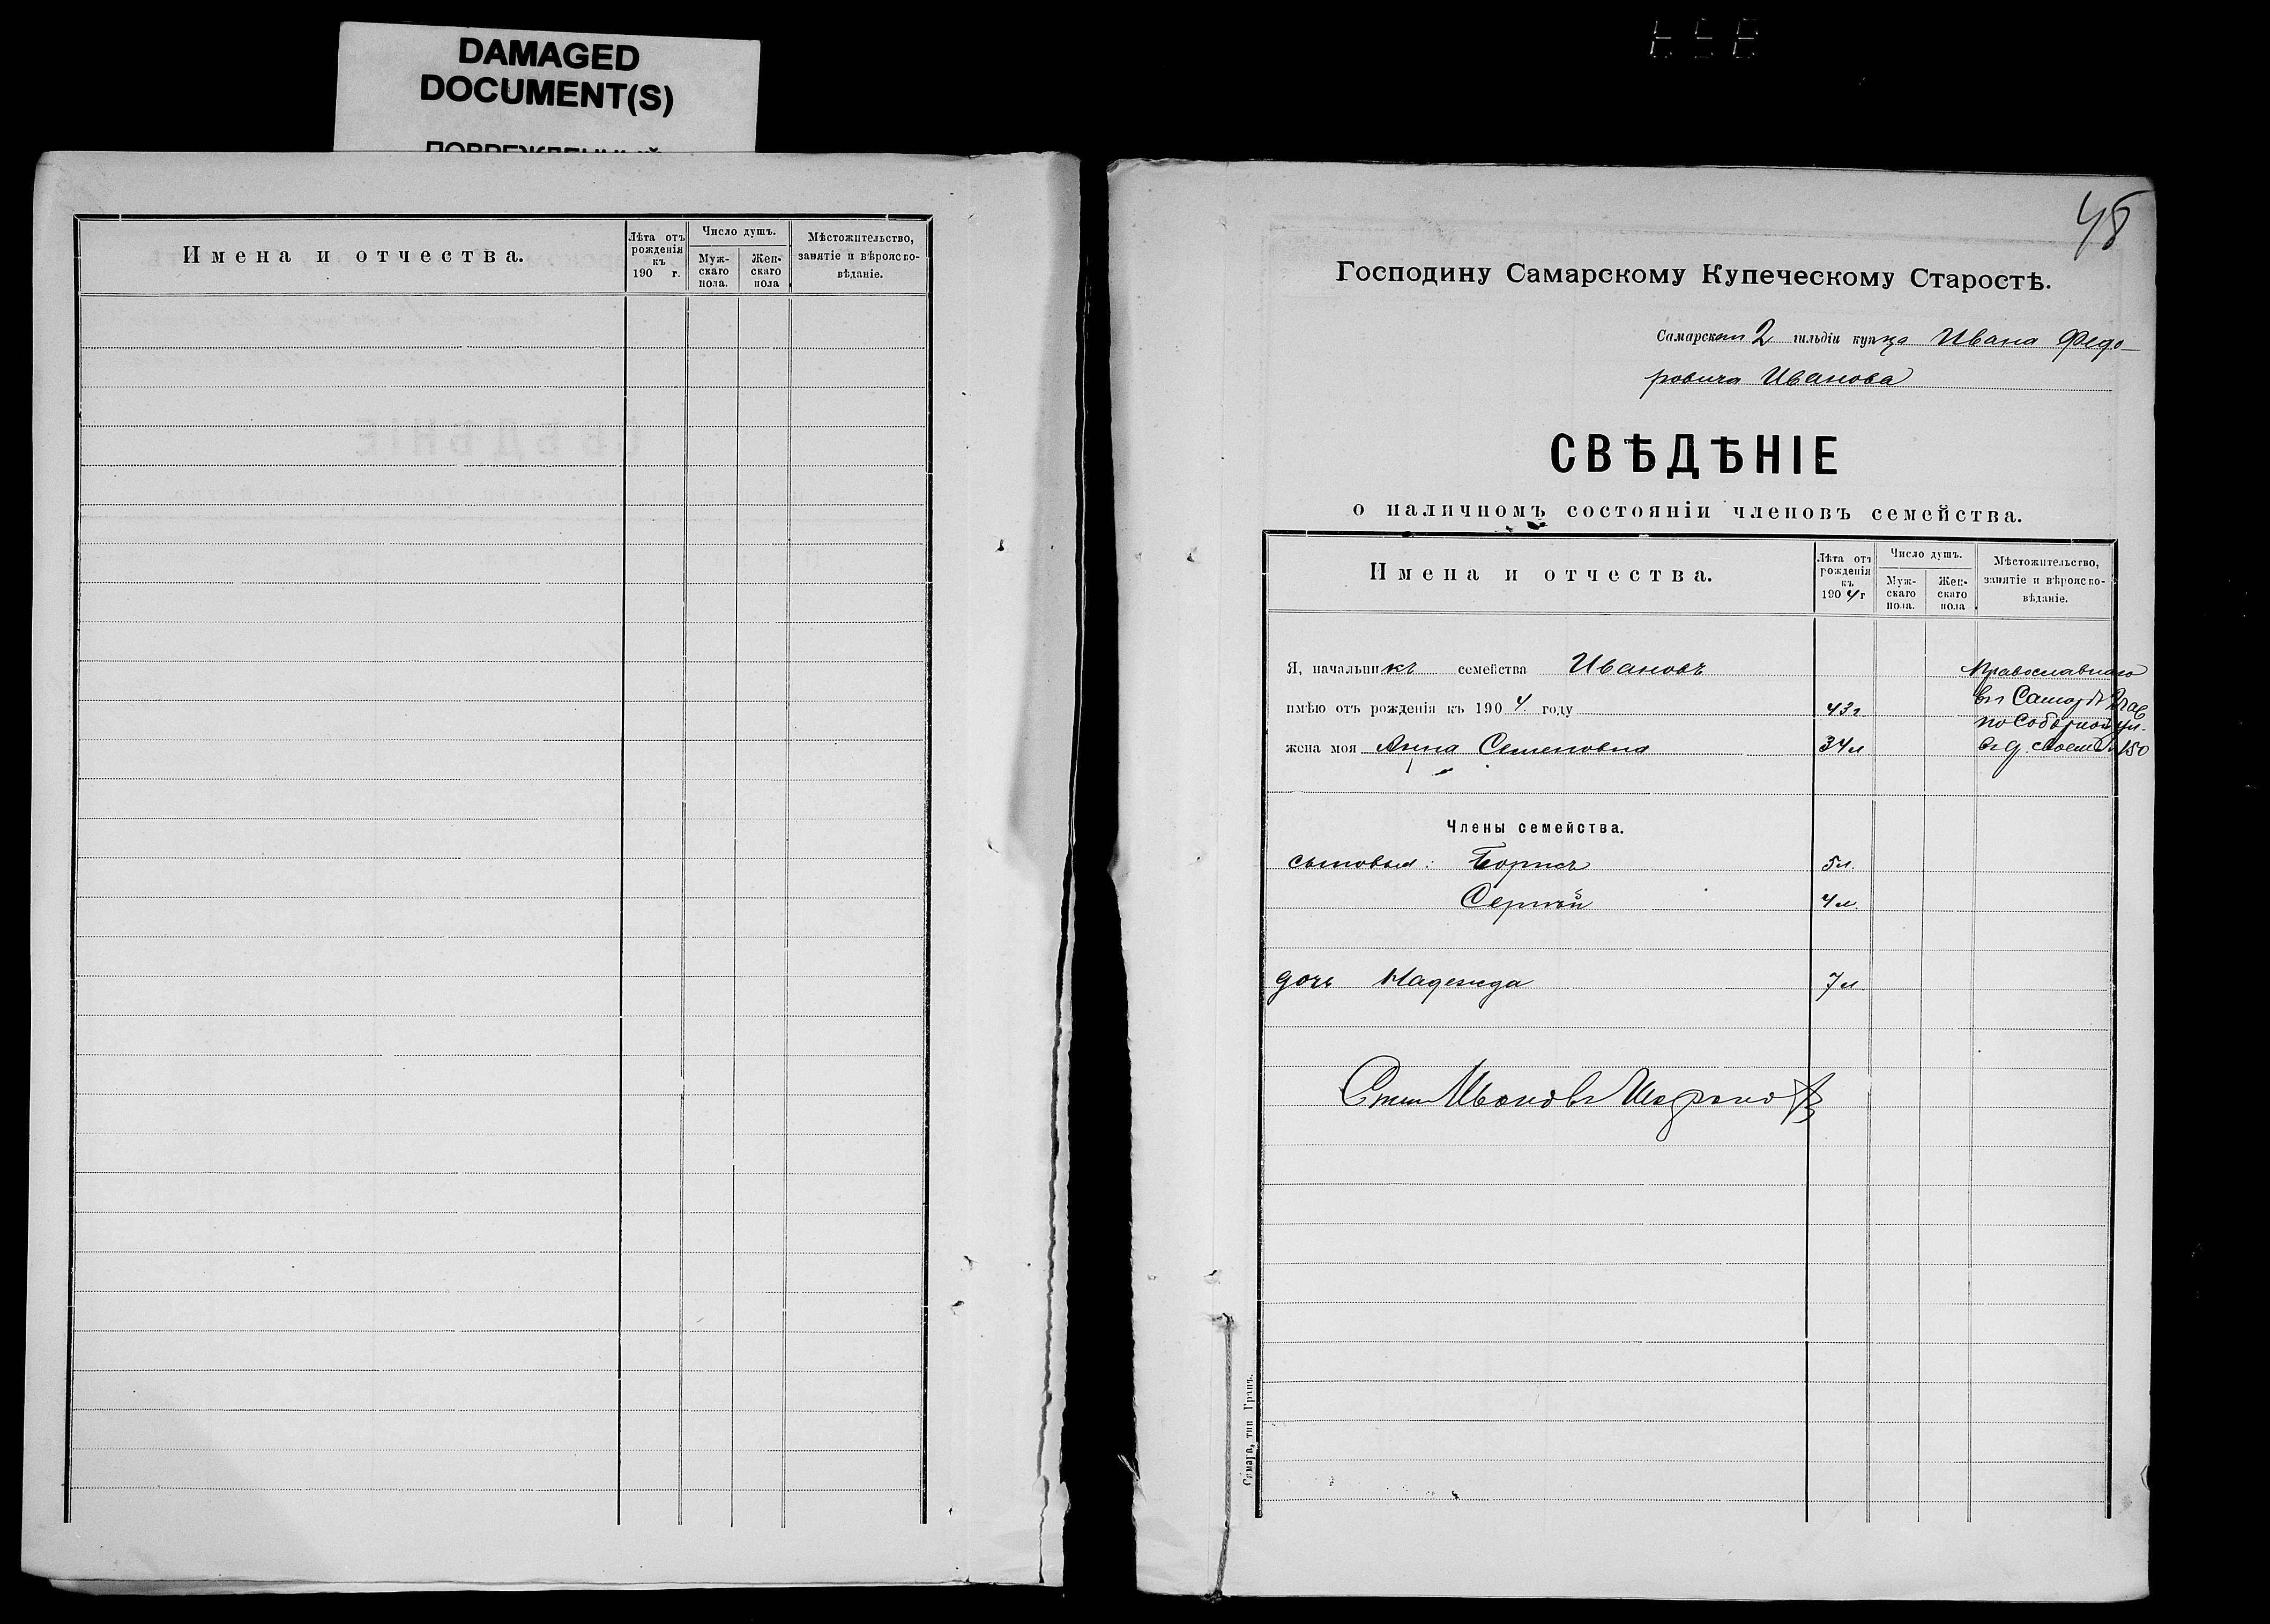 DAMAGED
DOCUMENT(S)
Имена и отчества.
Лѣта отъ рожденія къ 190 г.
Число душъ.
Мужскаго пола.
Женскаго пола
Мѣстожительство, занятіе и вѣроисповѣданіе.
48
Господину Самарскому Купеческому Старостѣ.
Самарскаго 2 гильдіи купца Ивана Федо-
ровича Иванова
СВѢДѢНІЕ
о наличномъ состояніи членовъ семейства.
Имена и отчества.
Лѣта отъ рожденія къ 1904 г
Число душъ.
Мужскаго пола.
Женскаго пола
Мѣстожительство, занятіе и вѣроисповѣданіе.
Я, начальникъ семейства Ивановъ Православнаго
въ Самарѣ 2 час
имѣю отъ рожденія къ 1904 году 43 г
по Соборной ул.
жена моя Анна Семеновна 34 л въ д. своемъ 150
Члены семейства.
сыновья: Борисъ 5 л.
Сергѣй 4 л.
дочь Надежда 7 л
Ивановъ
Самара, тип Гранъ.